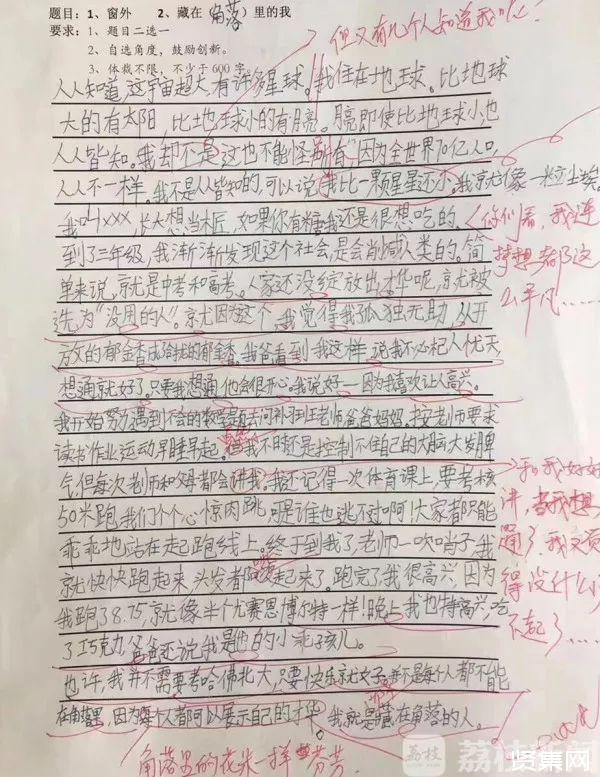 题目：1、窗外 2、藏在（角落）里的我
要求：1、题目二选一
2、自选角度，鼓励创新。
3、体裁不限，不少于600字
但又有几个人知道我呢！
人人知道，这宇宙超大，有许多星球。我住在地球。比地球
大的有太阳，比地球小的有月亮。月亮即使比地球小，也
人人皆知。我却不是，这也不能怪所有，因为全世界70亿人口，
人人不一样。我不是人人皆知的，可以说我比一颗星星还小，我就像一粒尘埃。
我叫xxx，长大想当木匠，如果你有糖我还是很想吃的。
你们看，我连梦想都这么平凡……
到了三年级，我渐渐发现这个社会，是会削减人类的。简
单来说，就是中考和高考。人家还没绽放出才华呢，就被
选为“没用的人”。就因为这个，我觉得我孤独无助，从开
放的郁金香成给我的郁金香。我爸看到我这样，说我不必杞人忧天，
想通就好了。只要我想通，他会很开心。我说好——因为我喜欢让人高兴。
我开始努力，遇到不会的数学题去问补习班老师爸爸妈妈。按老师要求
读书作业运动早睡早起。但我不时还是控制不住自己的大脑大发脾
气，但每次老师和父母都会讲我，我还记得一次体育课上，要考核
和我好好讲，当我想
50米跑，我们个个心惊肉跳，可是谁也逃不对啊！大家都只能
乖乖地站在起跑线上。终于到我了，老师一吹哨子，我
就快快跑起来，头发都飘起来了。跑完了，我很高兴，因为
我跑了8.75，就像半个尤赛恩博尔特一样！晚上，我也特高兴，吃
得没什么了不起了……
了巧克力，爸爸还说我是他的小乖孩儿。
也许，我并不需要考哈佛北大，只要快乐就好，并不是每个人都不能
在角落里，因为每个人都可以展示自己的才华。我就是藏在角落的人。
角落里的花朵一样芬芳
荔枝
贤集网